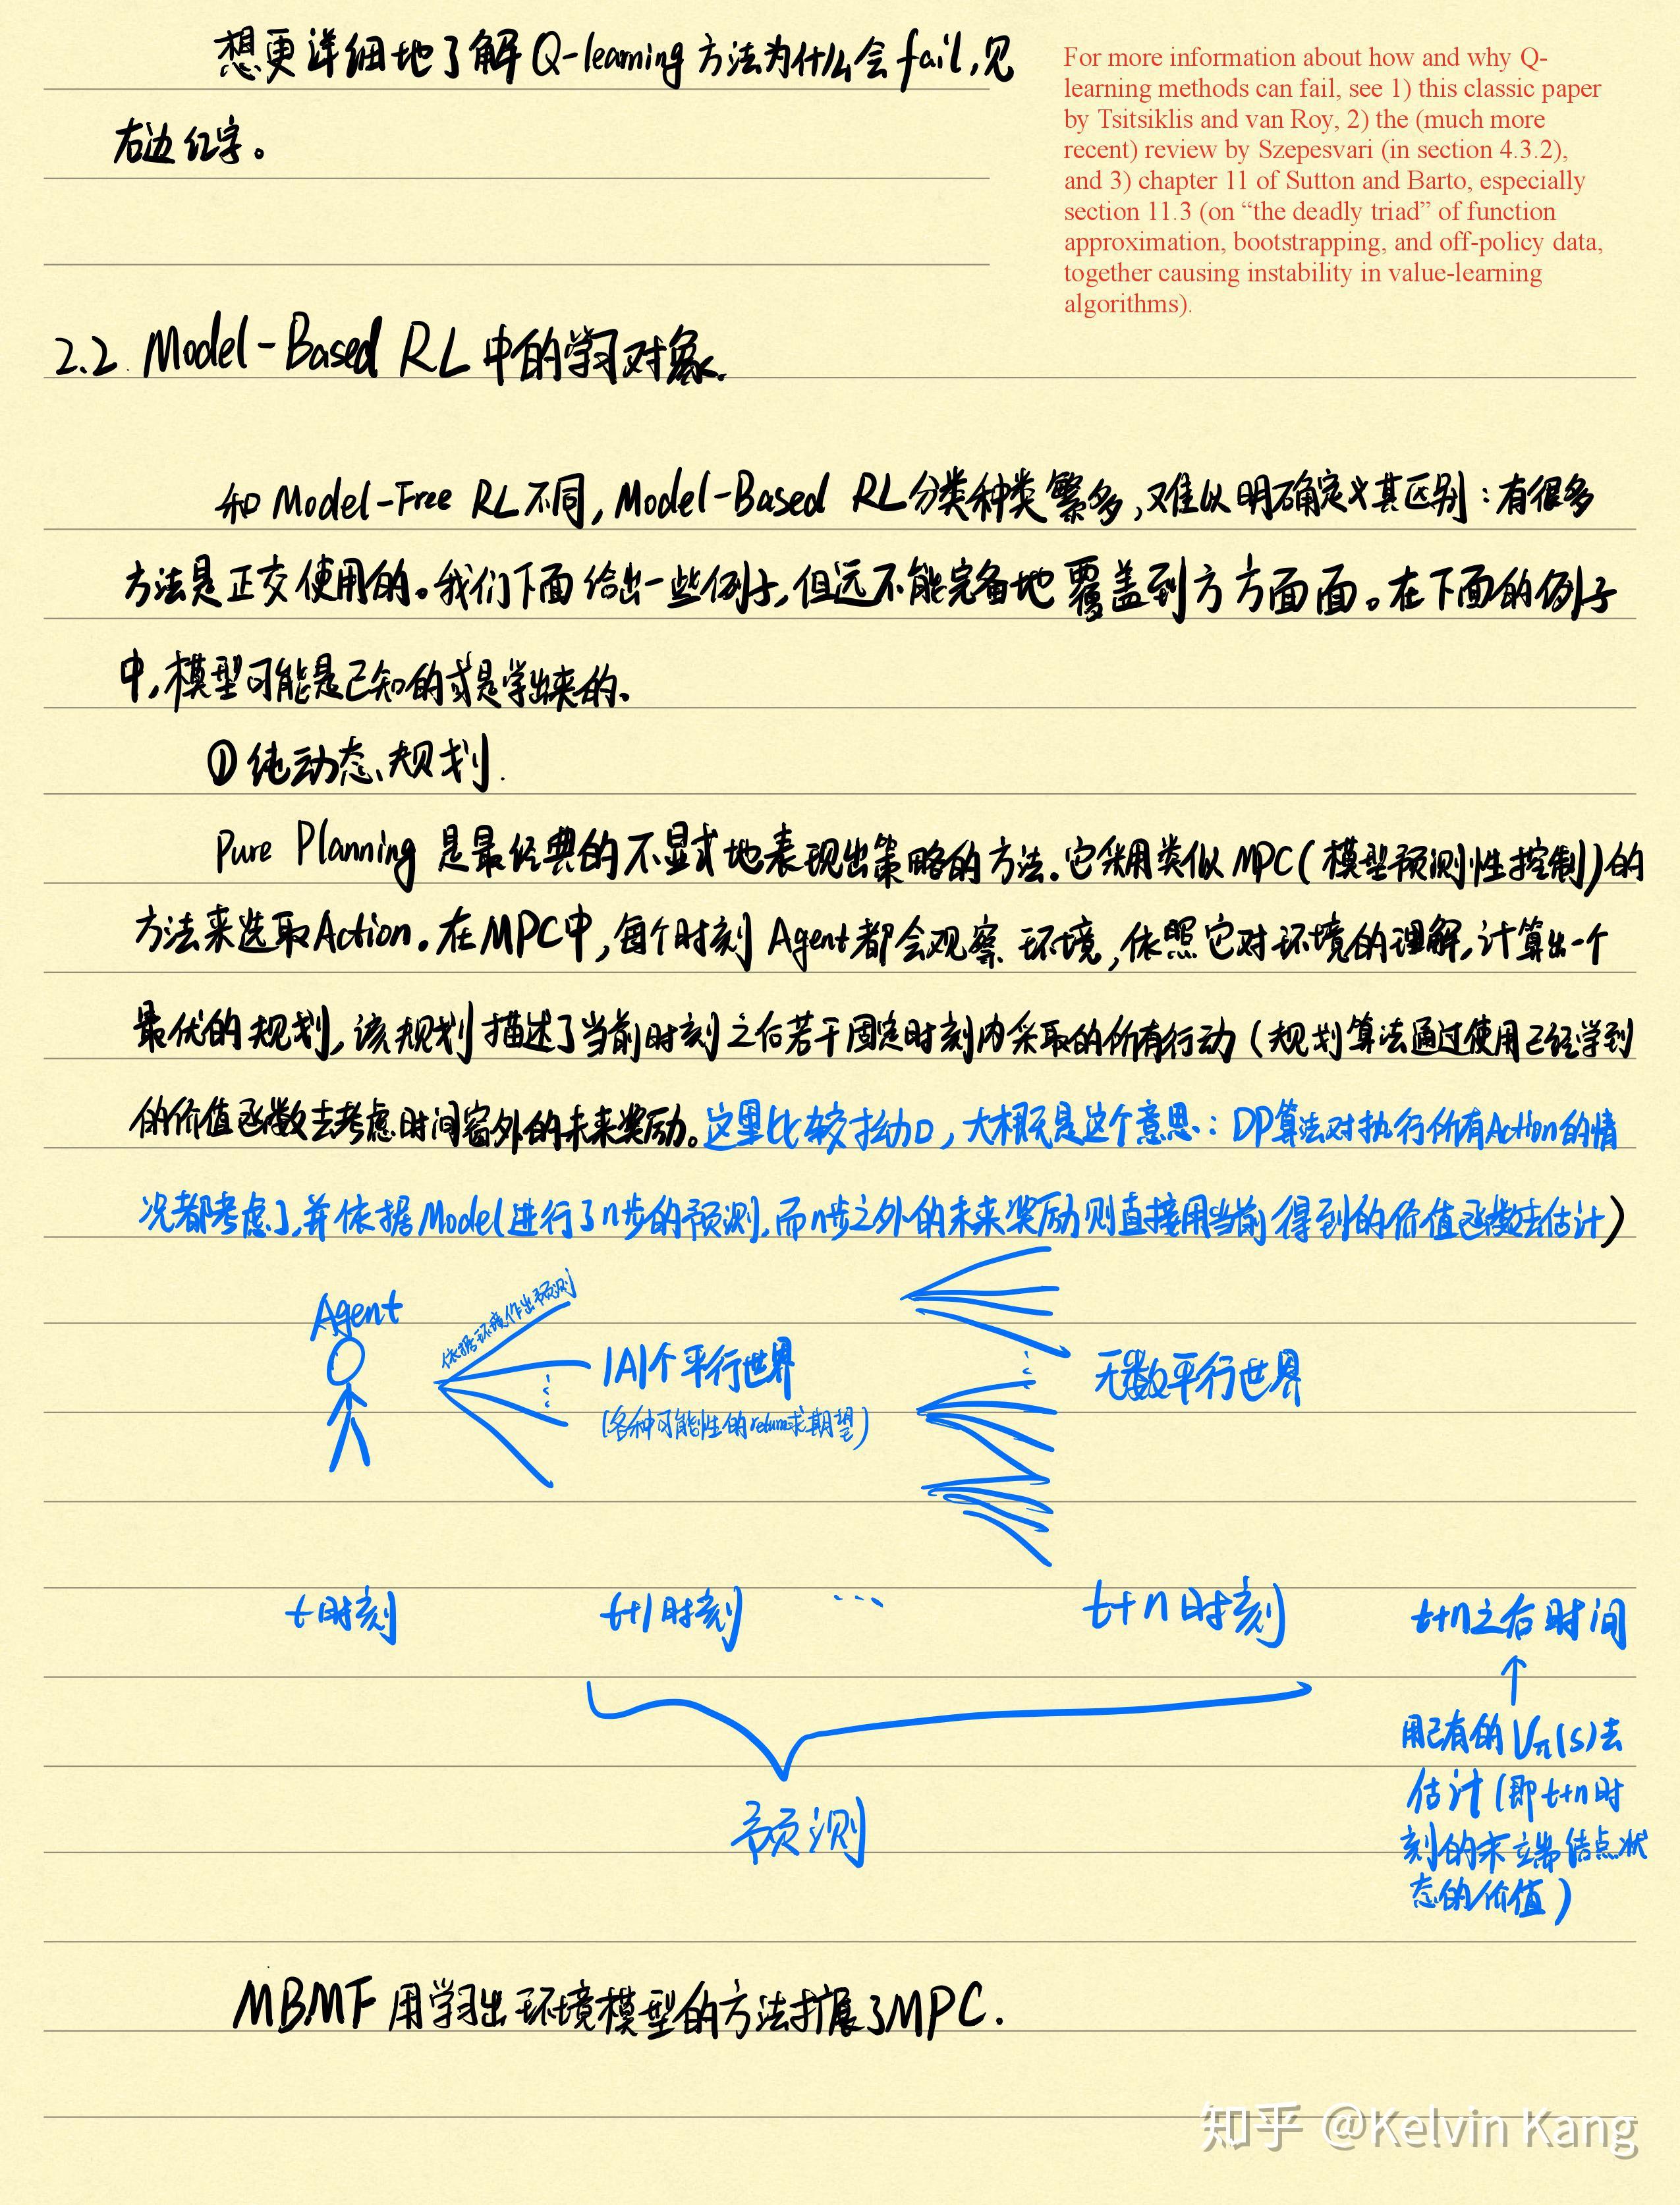 想更详细地了解Q-learning方法为什么会fail,见
右边红字。
For more information about how and why Q-
learning methods can fail, see 1) this classic paper
by Tsitsiklis and van Roy, 2) the (much more
recent) review by Szepesvari (in section 4.3.2),
and 3) chapter 11 of Sutton and Barto, especially
section 11.3 (on “the deadly triad” of function
approximation, bootstrapping, and off-policy data,
together causing instability in value-learning
algorithms).
2.2. Model-Based RL中的学习对象.
和Model-Free RL不同,Model-Based RL分类种类繁多,难以明确定义其区别:有很多
方法是正交使用的。我们下面给出一些例子,但远不能完备地覆盖到方方面面。在下面的例子
中,模型可能是已知的或是学出来的。
①纯动态规划.
Pure Planning 是最经典的不显式地表现出策略的方法.它采用类似MPC(模型预测性控制)的
方法来选取Action。在MPC中,每个时刻Agent都会观察环境,依照它对环境的理解,计算出一个
最优的规划,该规划描述了当前时刻之后若干固定时刻内采取的所有行动(规划算法通过使用已经学到
的价值函数去考虑时间窗外的未来奖励。这里比较拗口,大概是这个意思:DP算法对执行所有Action的情
况都考虑了,并依据Model进行了n步的预测,而n步之外的未来奖励则直接用当前得到的价值函数去估计)
Agent
依据环境作出预测
|A|个平行世界
(各种可能性的return求期望)
无数平行世界
t时刻 t+1时刻 ... t+n时刻 t+n之后时间
预测
用已有的Vπ(s)去
估计(即t+n时
刻的末端结点状
态的价值)
MBMF用学习出环境模型的方法扩展了MPC.
知乎 @Kelvin Kang